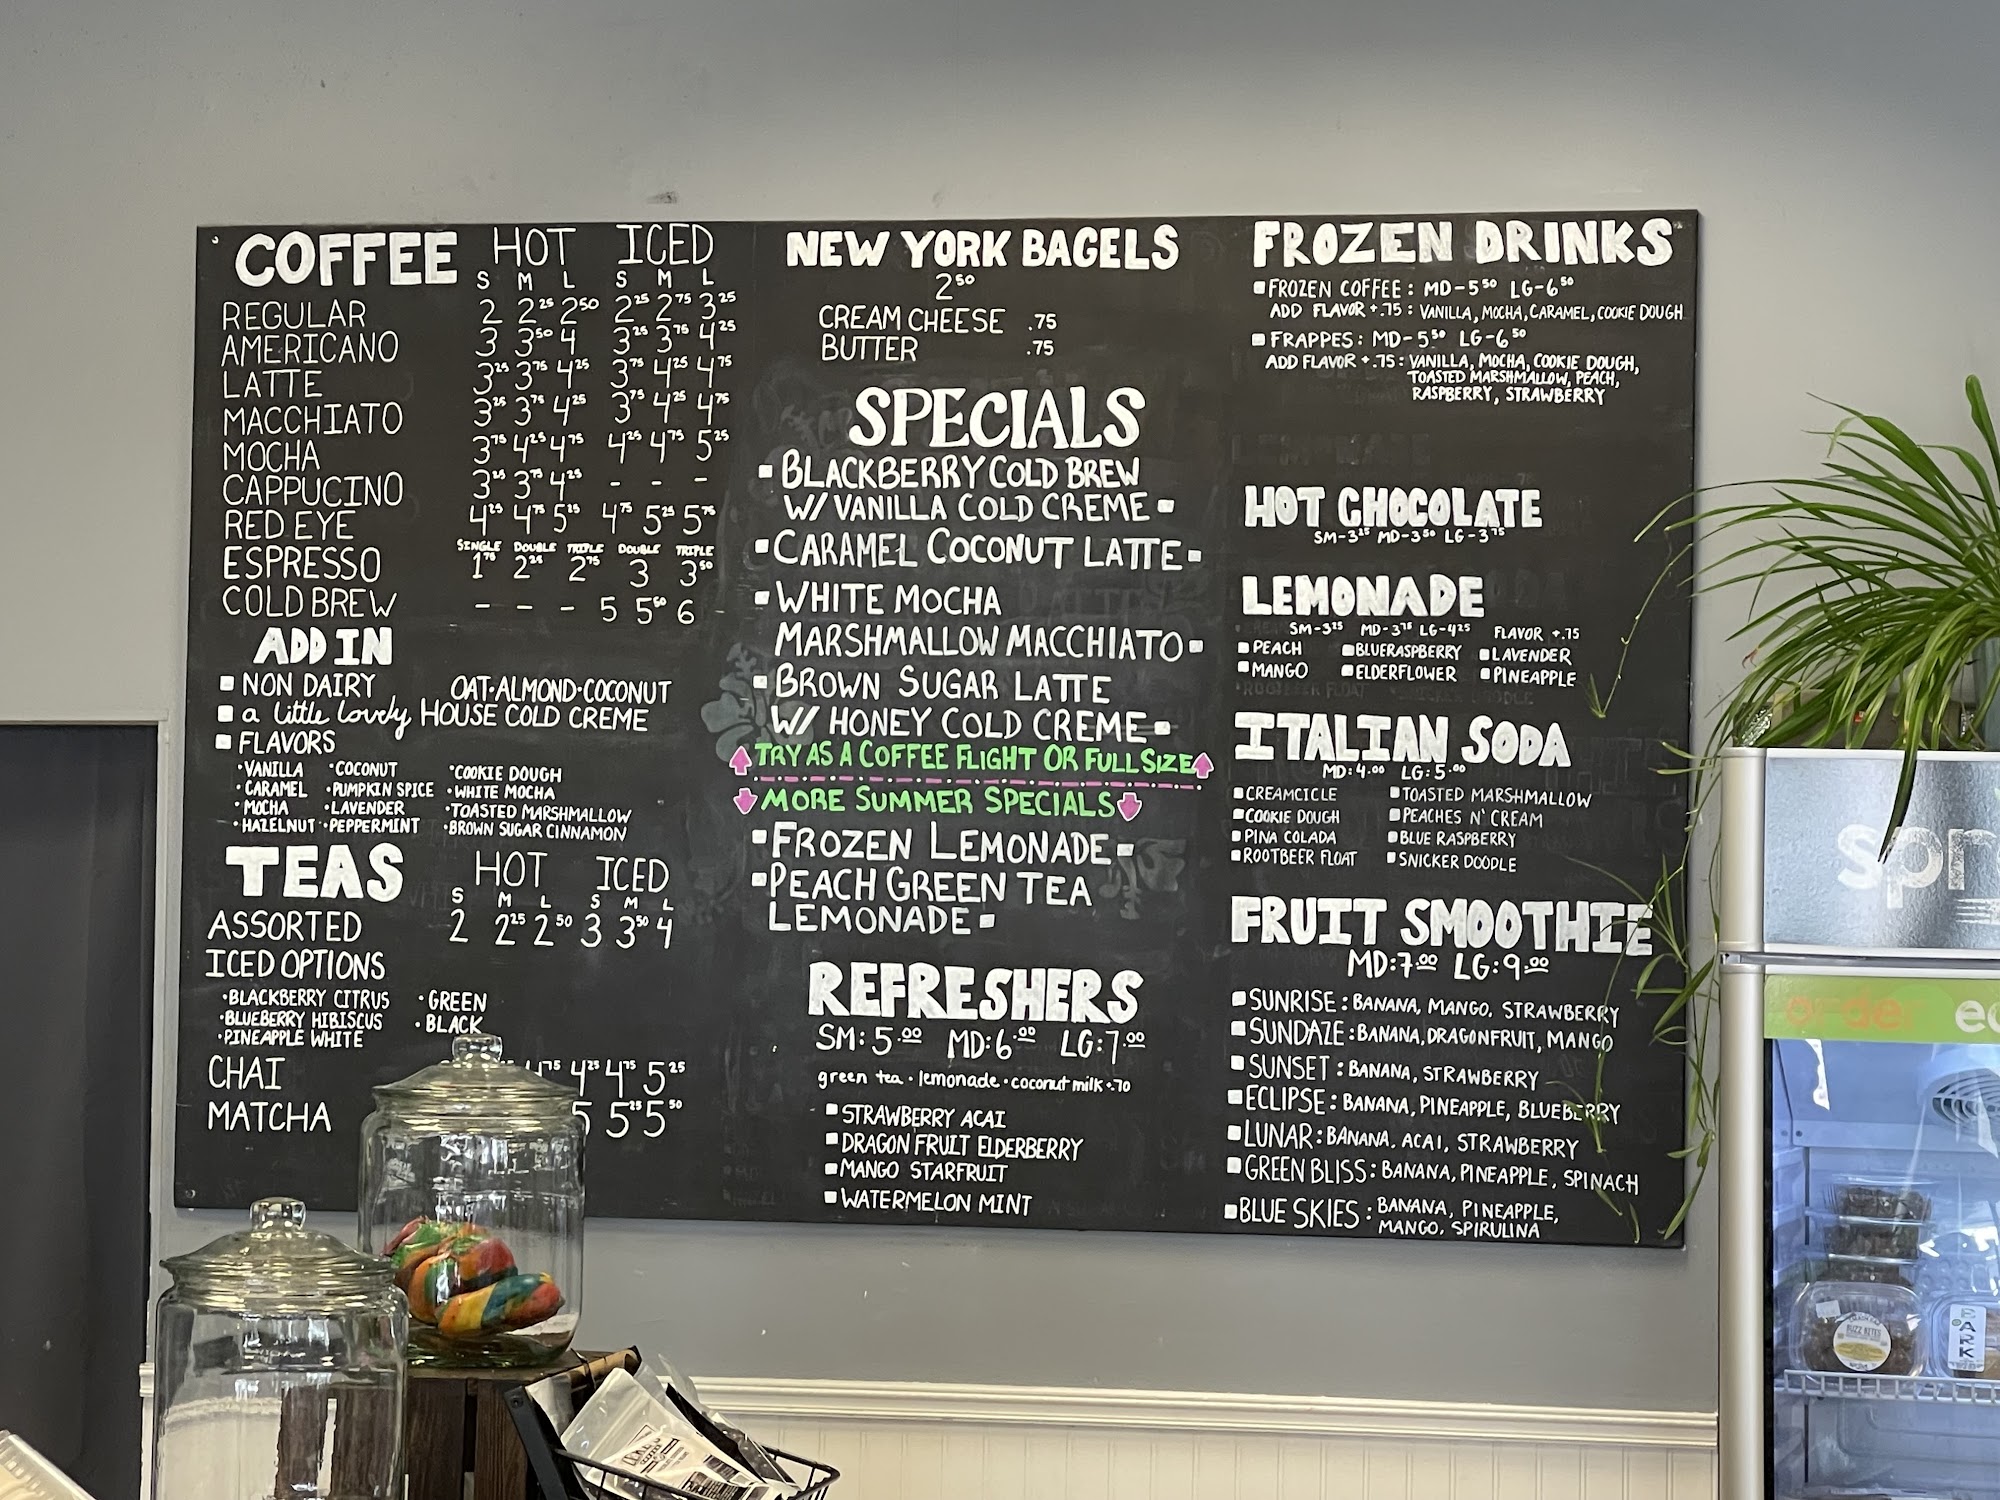 COFFEE HOT ICED
S M L S M L
REGULAR 2 2.25 2.50 2.25 2.75 3.25
AMERICANO 3 3.50 4 3.25 3.75 4.25
LATTE 3.25 3.75 4.25 3.75 4.25 4.75
MACCHIATO 3.25 3.75 4.25 3.75 4.25 4.75
MOCHA 3.75 4.25 4.75 4.25 4.75 5.25
CAPPUCINO 3.25 3.75 4.25 - - -
RED EYE 4.25 4.75 5.25 4.75 5.25 5.75
SINGLE DOUBLE TRIPLE DOUBLE TRIPLE
ESPRESSO 1.75 2.25 2.75 3 3.50
COLD BREW - - - 5 5.50 6
ADD IN
NON DAIRY OAT·ALMOND·COCONUT
a little lovely HOUSE COLD CREME
FLAVORS
·VANILLA ·COCONUT ·COOKIE DOUGH
·CARAMEL ·PUMPKIN SPICE ·WHITE MOCHA
·MOCHA ·LAVENDER ·TOASTED MARSHMALLOW
·HAZELNUT ·PEPPERMINT ·BROWN SUGAR CINNAMON
TEAS HOT ICED
S M L S M L
ASSORTED 2 2.25 2.50 3 3.50 4
ICED OPTIONS
·BLACKBERRY CITRUS ·GREEN
·BLUEBERRY HIBISCUS ·BLACK
·PINEAPPLE WHITE
CHAI 4.25 4.75 5.25
MATCHA 5 5.25 5.50
NEW YORK BAGELS
2.50
CREAM CHEESE .75
BUTTER .75
SPECIALS
BLACKBERRY COLD BREW
W/ VANILLA COLD CREME
CARAMEL COCONUT LATTE
WHITE MOCHA
MARSHMALLOW MACCHIATO
BROWN SUGAR LATTE
W/ HONEY COLD CREME
TRY AS A COFFEE FLIGHT OR FULL SIZE
MORE SUMMER SPECIALS
FROZEN LEMONADE
PEACH GREEN TEA
LEMONADE
REFRESHERS
SM: 5.00 MD: 6.00 LG: 7.00
green tea · lemonade · coconut milk +.70
STRAWBERRY ACAI
DRAGON FRUIT ELDERBERRY
MANGO STARFRUIT
WATERMELON MINT
FROZEN DRINKS
FROZEN COFFEE: MD-5.50 LG-6.50
ADD FLAVOR +.75: VANILLA, MOCHA, CARAMEL, COOKIE DOUGH
FRAPPES: MD-5.50 LG-6.50
ADD FLAVOR +.75: VANILLA, MOCHA, COOKIE DOUGH,
TOASTED MARSHMALLOW, PEACH,
RASPBERRY, STRAWBERRY
HOT CHOCOLATE
SM-3.25 MD-3.50 LG-3.75
LEMONADE
SM-3.25 MD-3.75 LG-4.25 FLAVOR +.75
PEACH BLUERASPBERRY LAVENDER
MANGO ELDERFLOWER PINEAPPLE
ITALIAN SODA
MD: 4.00 LG: 5.00
CREAMCICLE TOASTED MARSHMALLOW
COOKIE DOUGH PEACHES N' CREAM
PINA COLADA BLUE RASPBERRY
ROOTBEER FLOAT SNICKER DOODLE
FRUIT SMOOTHIE
MD: 7.00 LG: 9.00
SUNRISE: BANANA, MANGO, STRAWBERRY
SUNDAZE: BANANA, DRAGONFRUIT, MANGO
SUNSET: BANANA, STRAWBERRY
ECLIPSE: BANANA, PINEAPPLE, BLUEBERRY
LUNAR: BANANA, ACAI, STRAWBERRY
GREEN BLISS: BANANA, PINEAPPLE, SPINACH
BLUE SKIES: BANANA, PINEAPPLE,
MANGO, SPIRULINA
order
BUZZ BITES
BARK